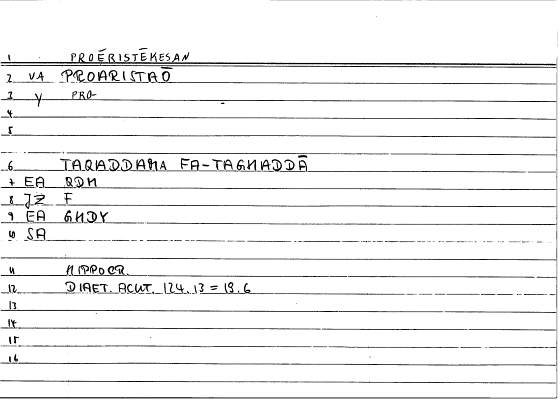 1 PROĒRISTĒKESAN
2 VA PROARISTAŌ
3 Y PRO-
4
5
6 TAQADDAMA FA-TAGHADDĀ
7 EA QDM
8 JZ F
9 EA GHDY
10 SA
11 HIPPOCR.
12 DIAET. ACUT. 124.13 = 19.6
13
14
15
16